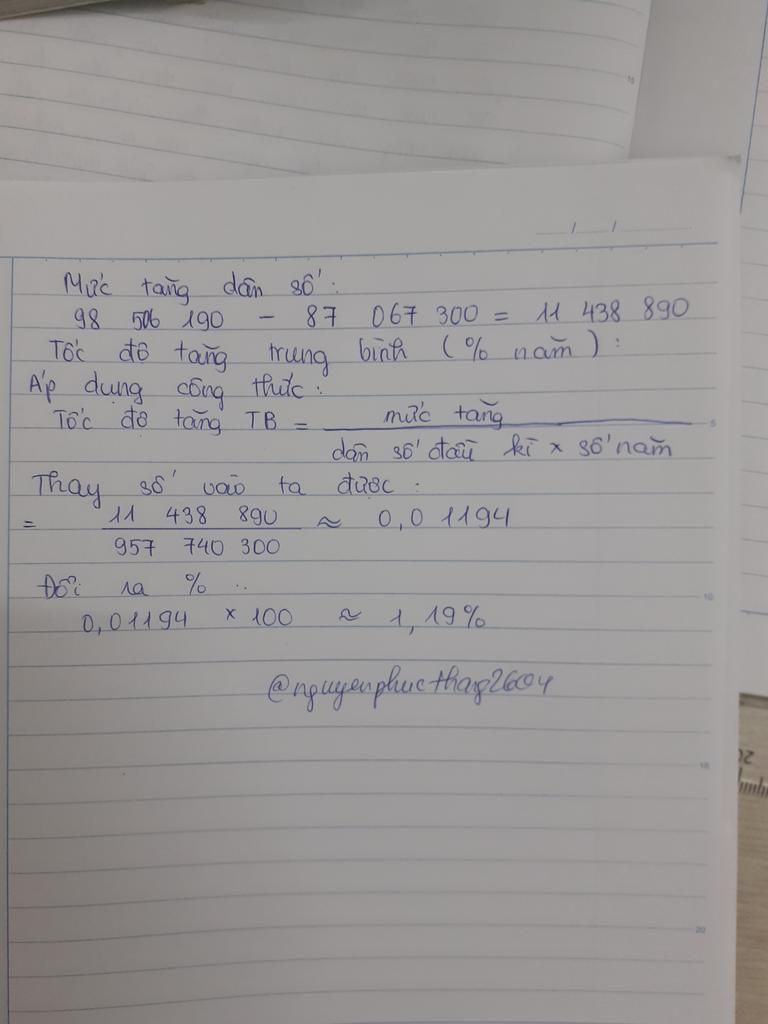 Mức tăng dân số:
98 506 190 - 87 067 300 = 11 438 890
Tốc độ tăng trung bình (% năm):
Áp dụng công thức:
Tốc độ tăng TB = mức tăng
dân số đầu kì × số năm
Thay số vào ta được:
= 11 438 890 ≈ 0,01194
957 740 300
Đổi ra % :
0,01194 × 100 ≈ 1,19%
@nguyenphucthang2604
5
10
15
20
15